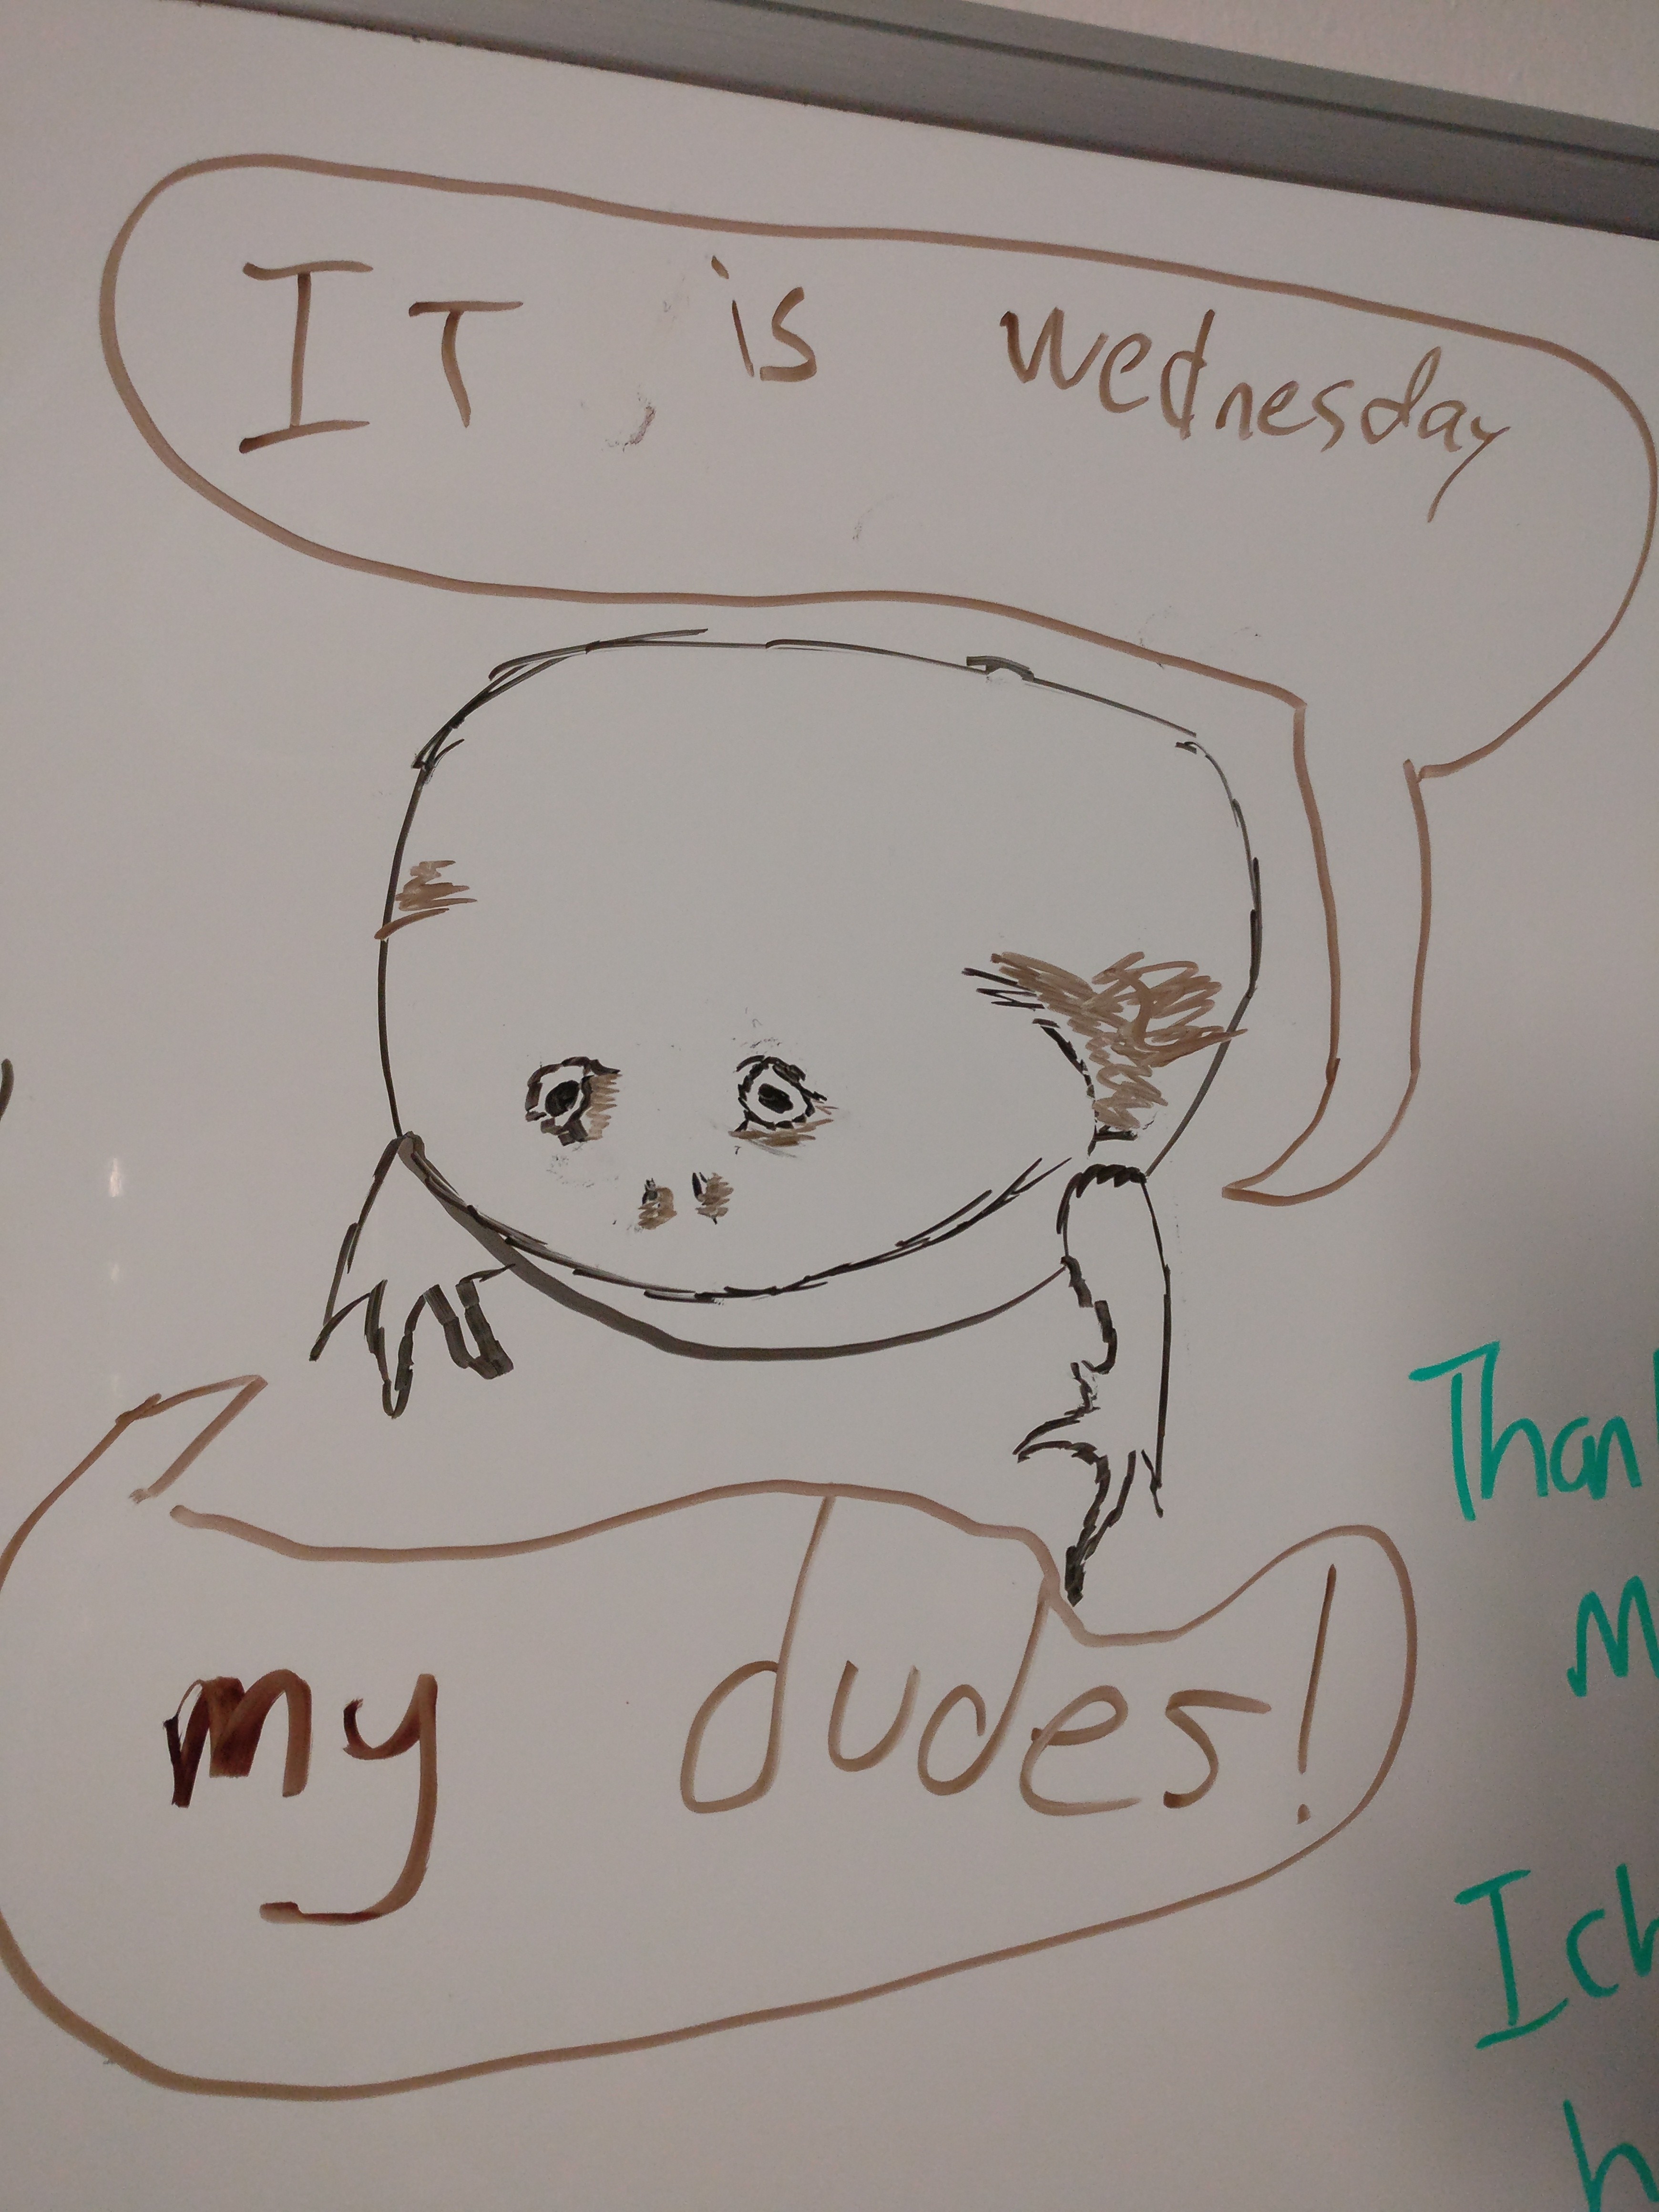 IT is wednesday
my dudes!
Than
M
Ich
h